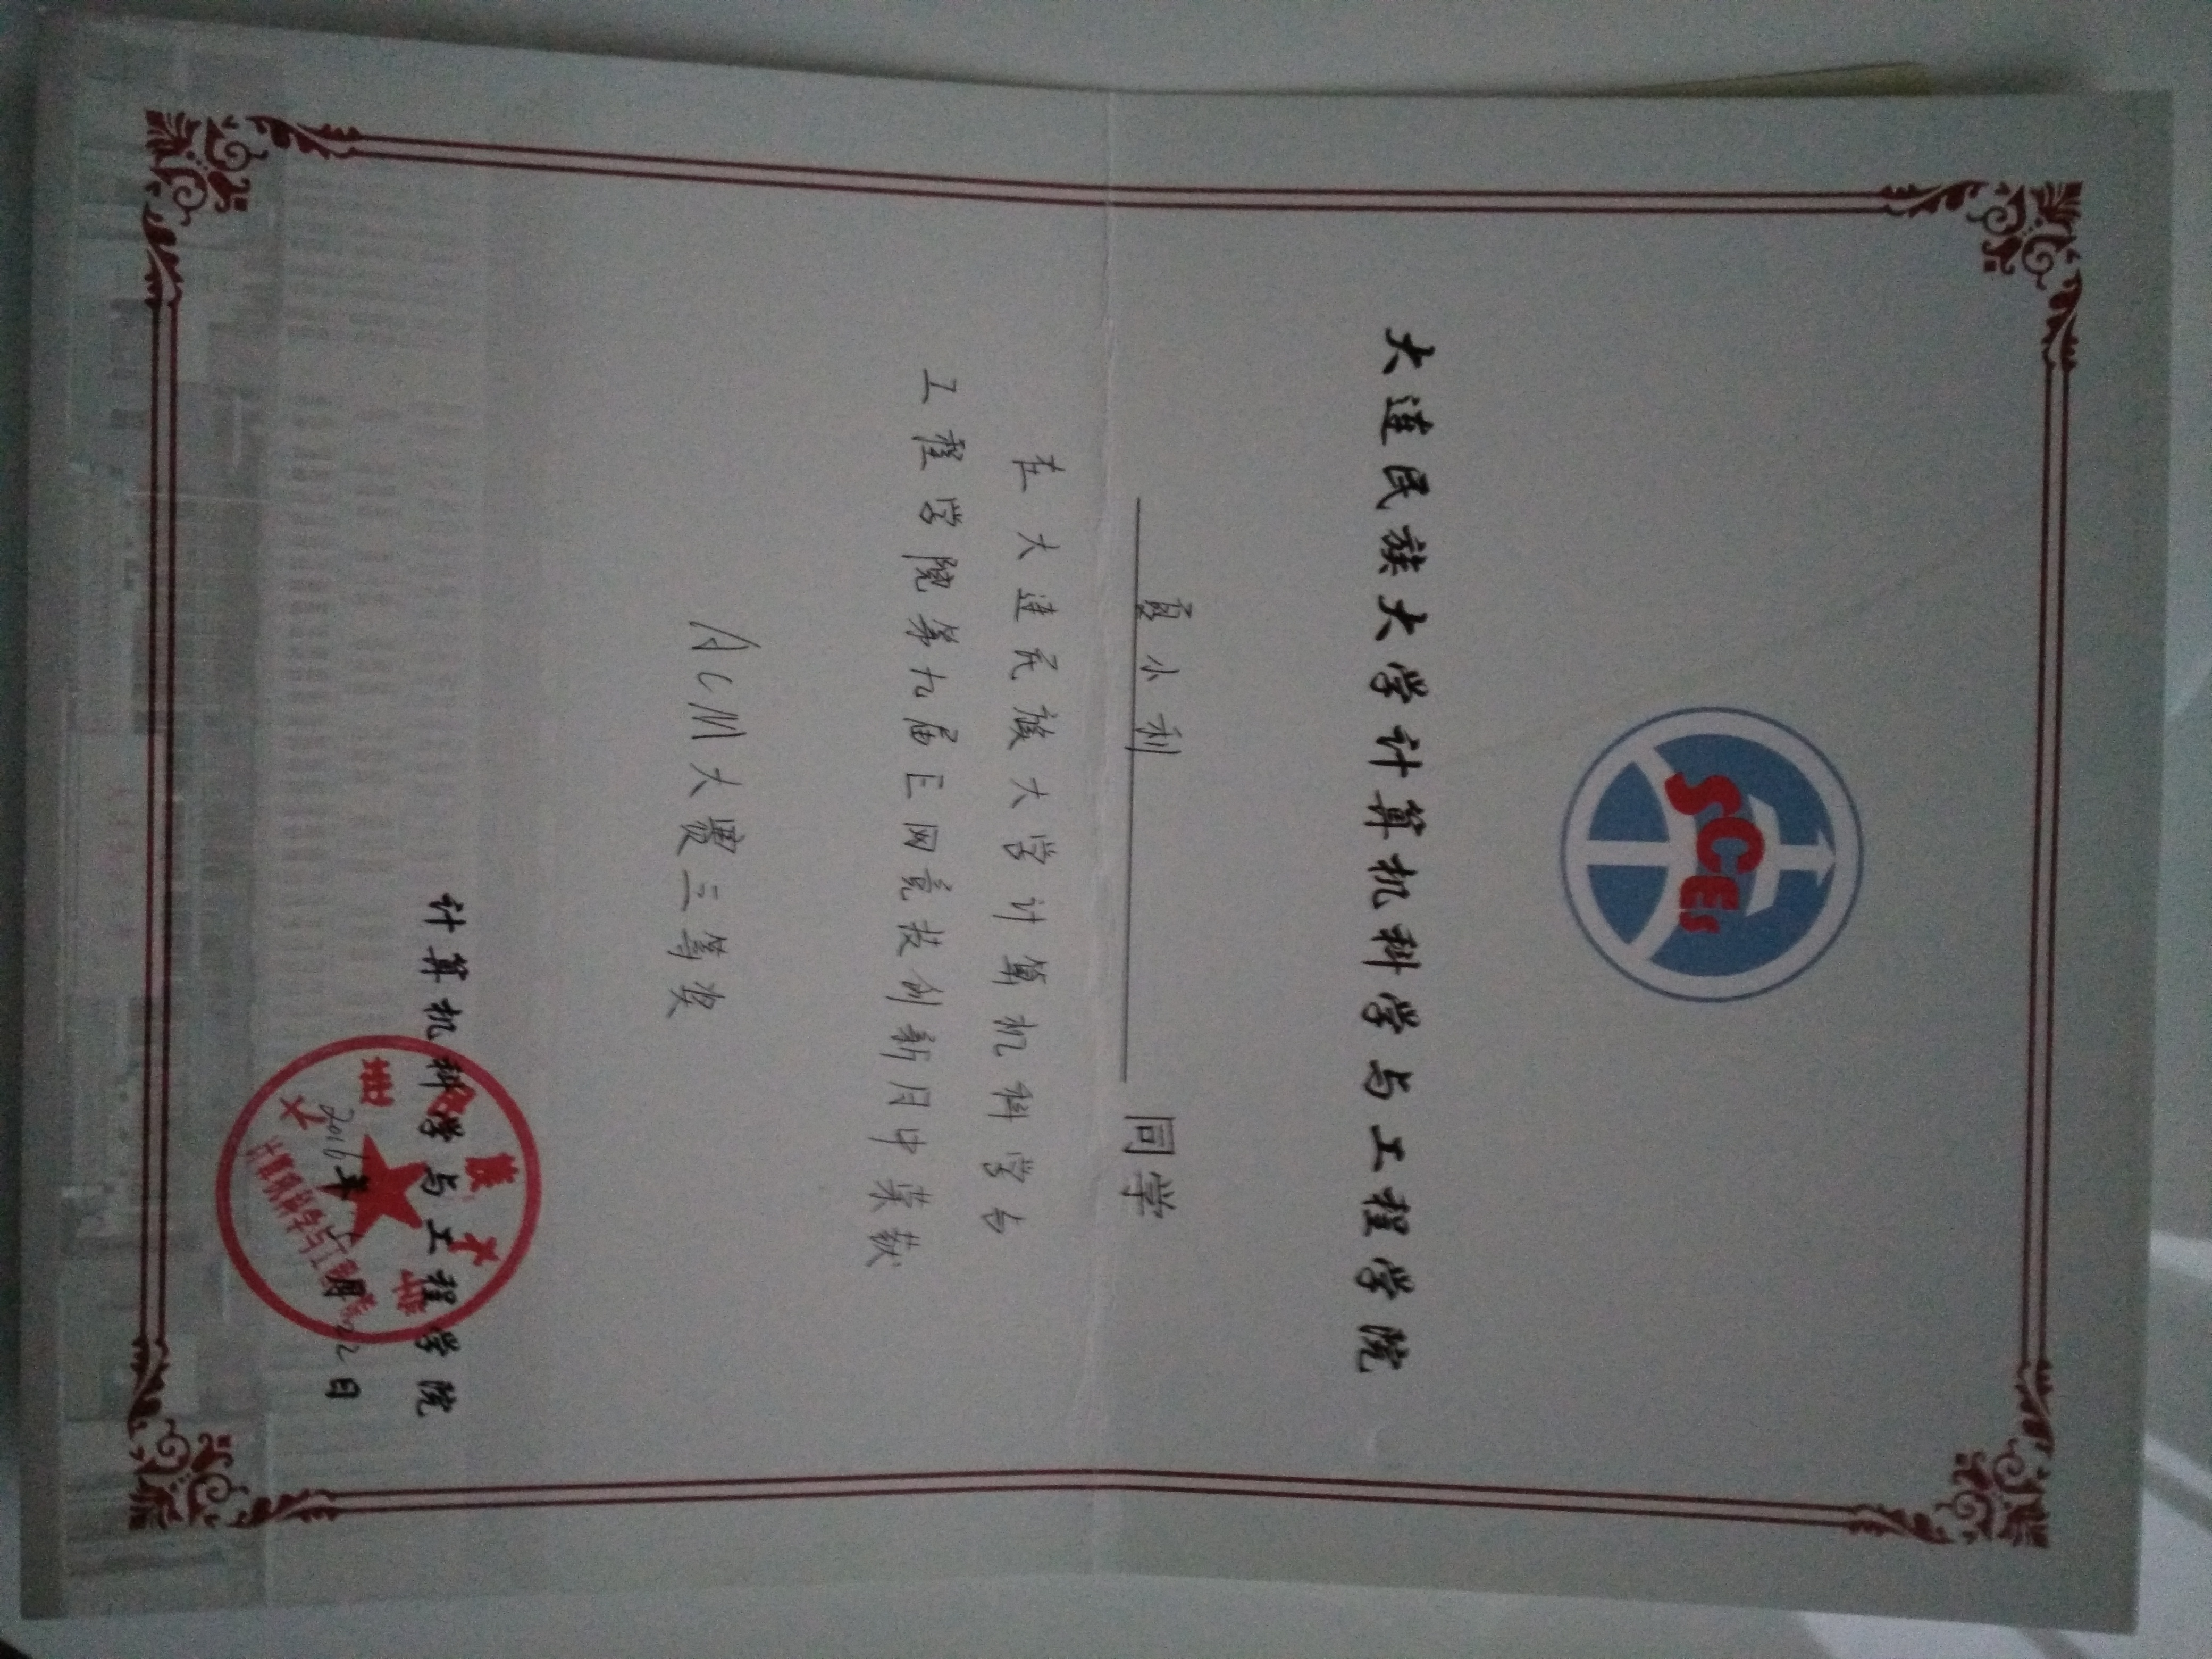 SCEs
大连民族大学计算机科学与工程学院
夏小利 同学
在大连民族大学计算机科学与
工程学院第九届E网竞技创新月中荣获
ACM大赛三等奖
计算机科学与工程学院
2016年5月22日
大连民族大学
计算机科学与工程学院